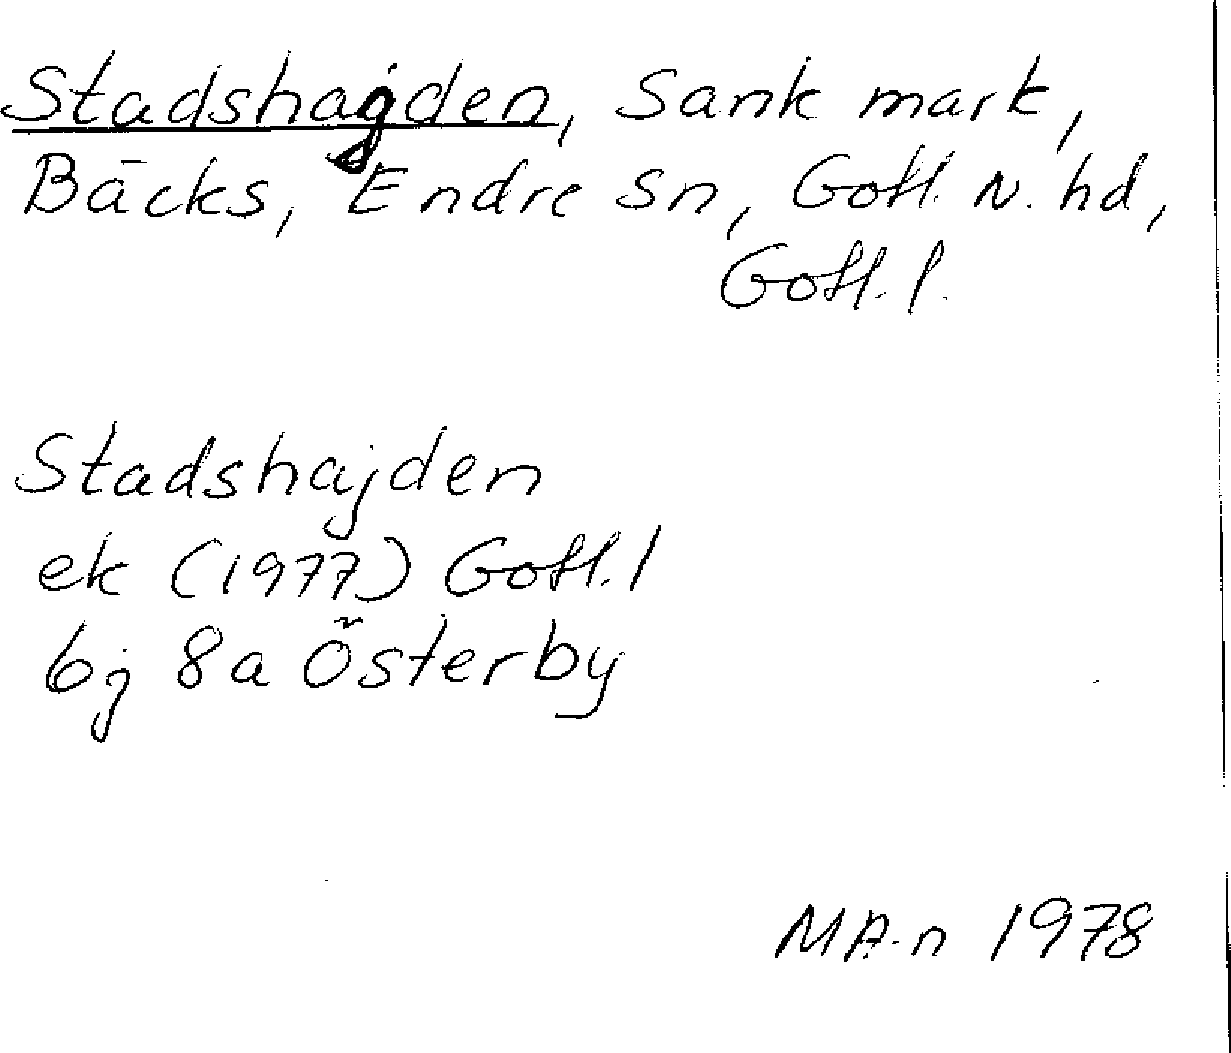 Stadshagden, Sank mark,
Bäcks, Endre sn, Gotl. N. hd,
Gotl. l.
Stadshajden
ek (1977) Gotl. l
6j 8a Österby
MA-n 1978